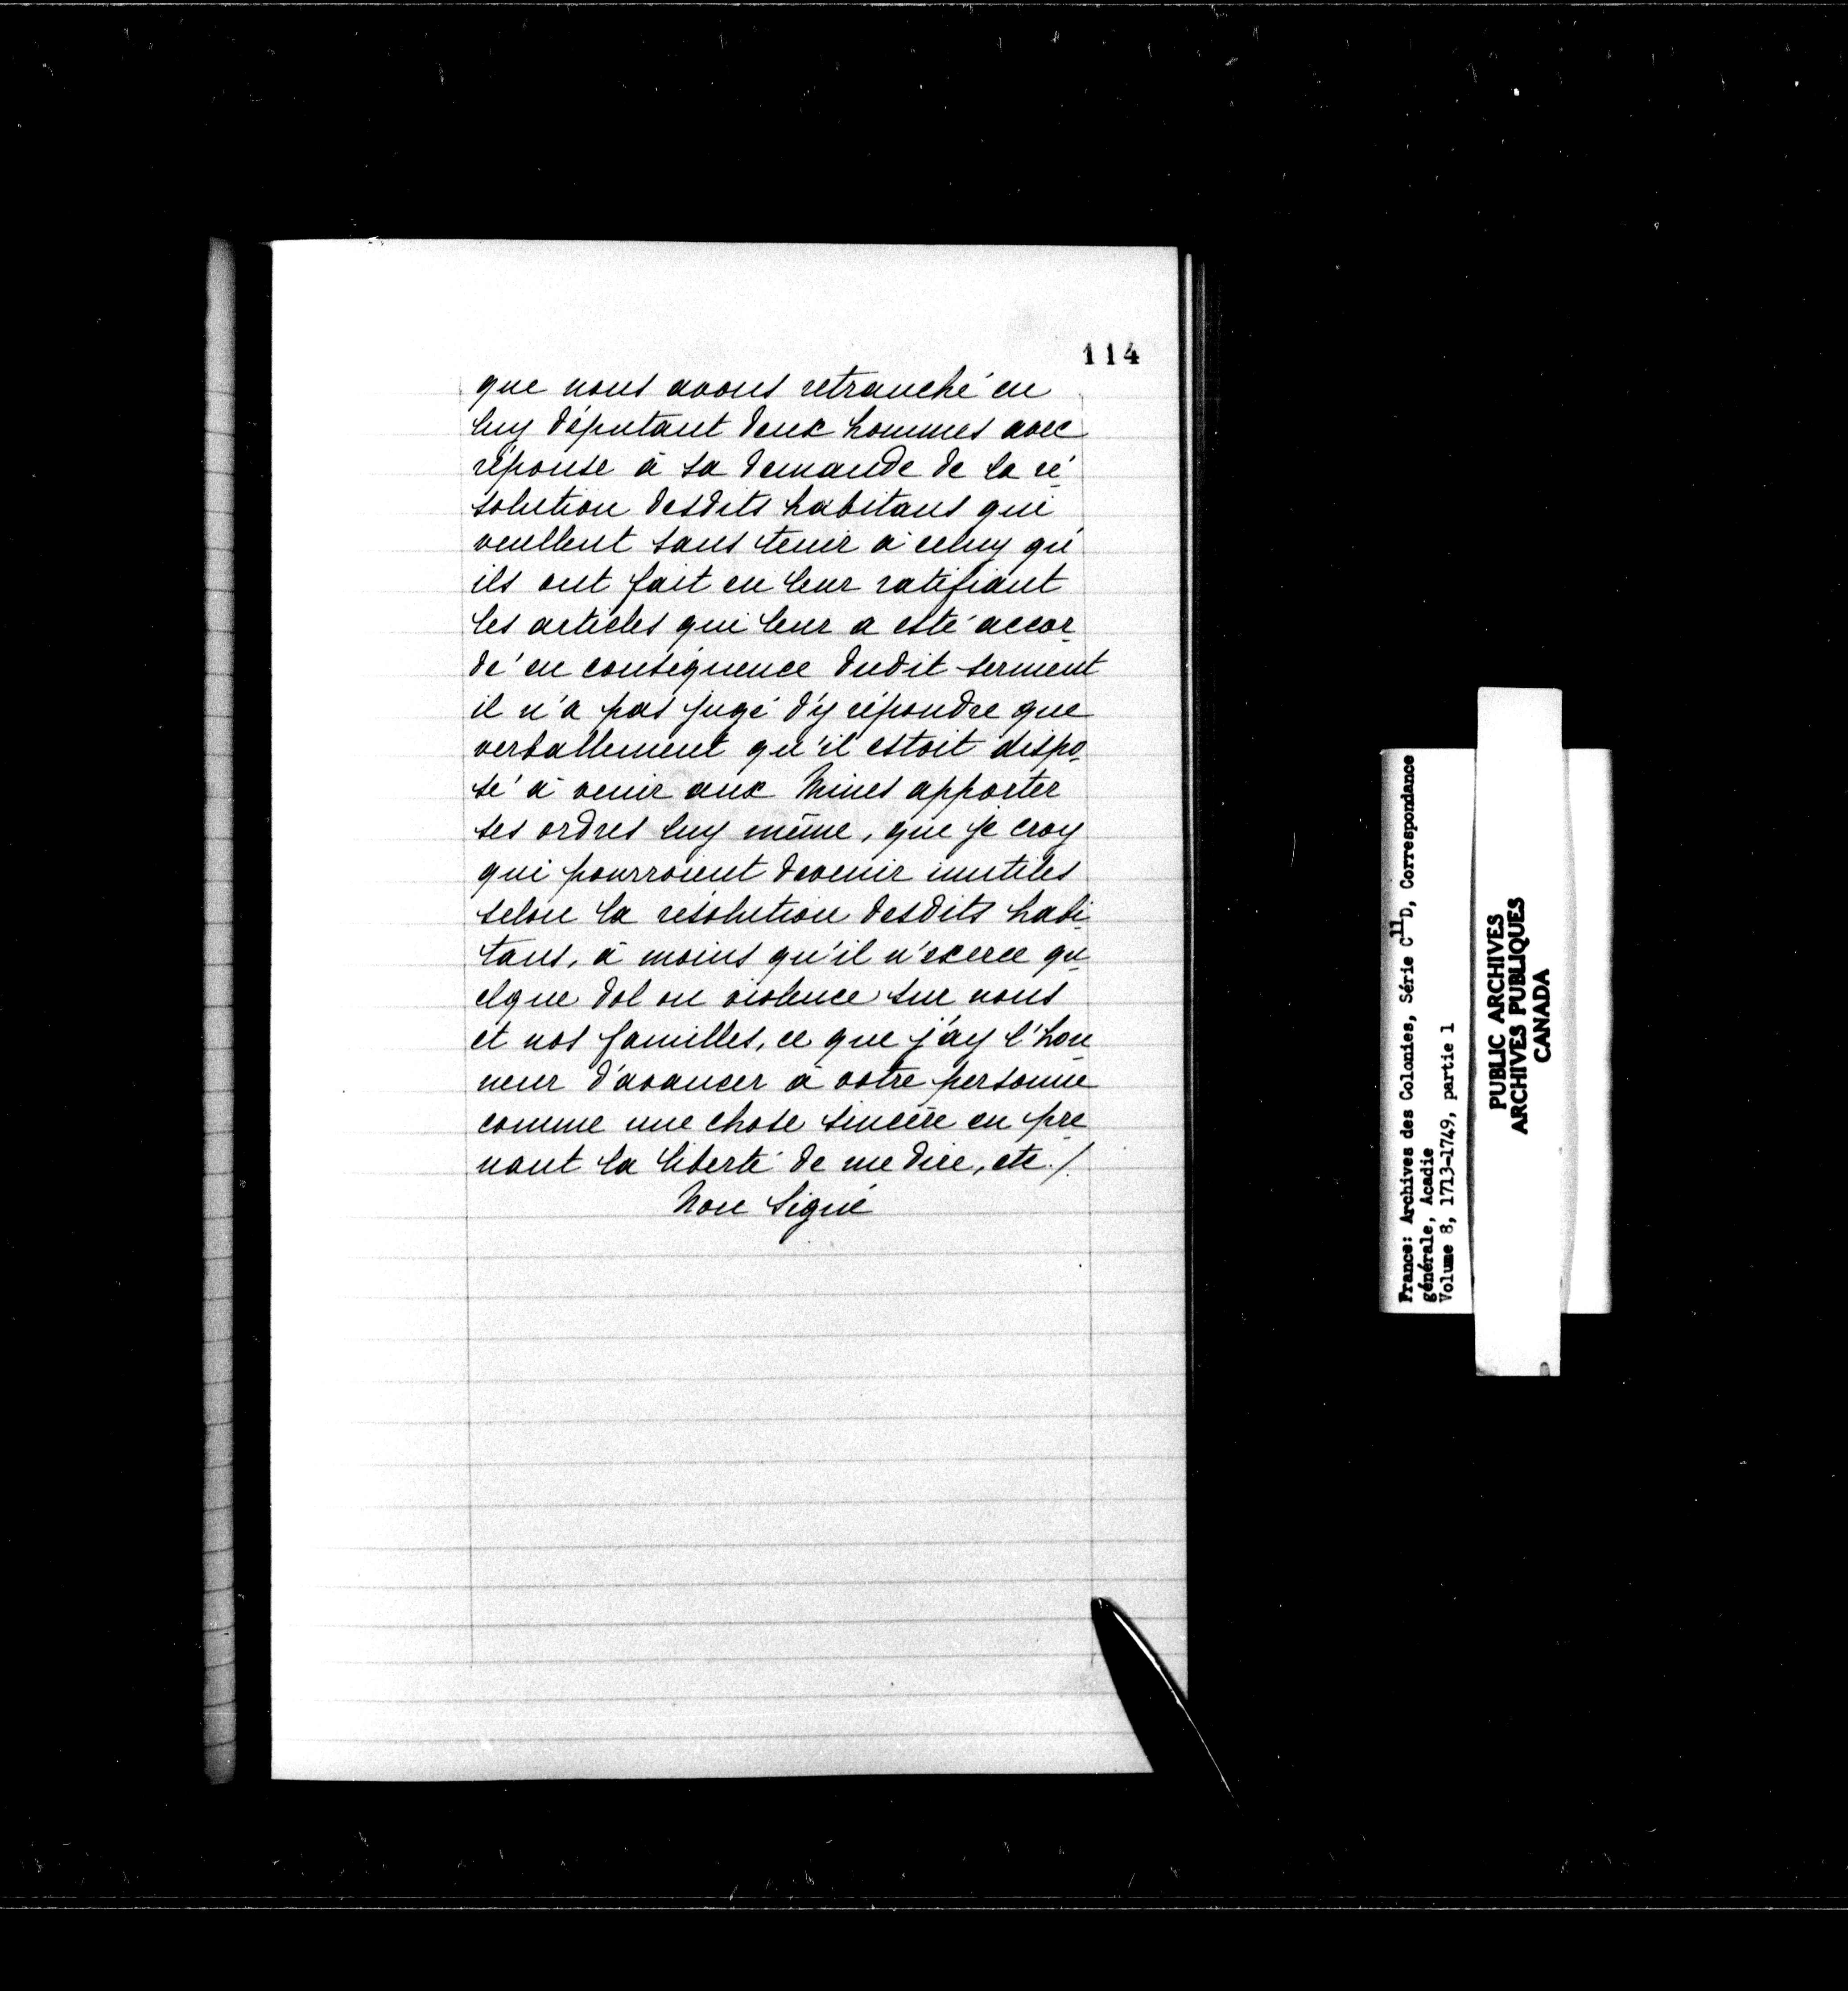 114
que nous avons retranché en
luy députant deux hommes avec
réponse à sa demande de la ré
solution desdits habitans qui
veullent sans tenir à celuy qu'
ils ont fait en leur ratifiant
les articles qui leur a esté accor
dé en conséquence dudit serment
il n'a pas jugé d'y répondre que
verballement qu'il estoit dispo
sé à venir aux Mines apporter
ses ordres luy même, que je croy
qui pourroient devenir inutiles
selon la résolution desdits habi
tans, à moins qu'il n'exerce qu
elque dol ou violence sur nous
et nos familles, ce que j'ay l'hon
neur d'avancer à votre personne
comme une chose sincère en pre
nant la liberté de me dire, etc./.
Non Signé
France: Archives des Colonies, Série C11D, Correspondance
générale, Acadie
Volume 8, 1713-1749, partie 1
PUBLIC ARCHIVES
ARCHIVES PUBLIQUES
CANADA